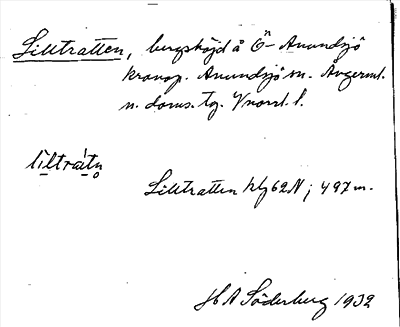 Lilltratten, bergshöjd å Ö-Anundsjö
kronop. Anundsjö sn. Ångerml.
n. doms. tg. Vnorrl. l.
lìltrát̥n̥
Lilltratten kbl 62N; 497 m.
H A Söderberg 1932